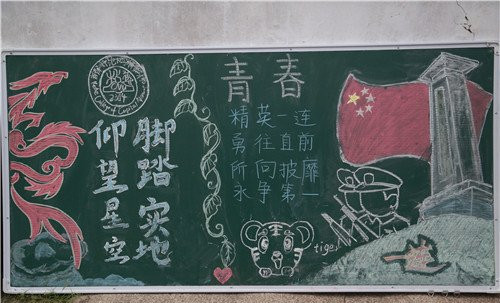 青春
仰望星空
脚踏实地
精英一连
勇往直前
所向披靡
永争第一
tiger
一连